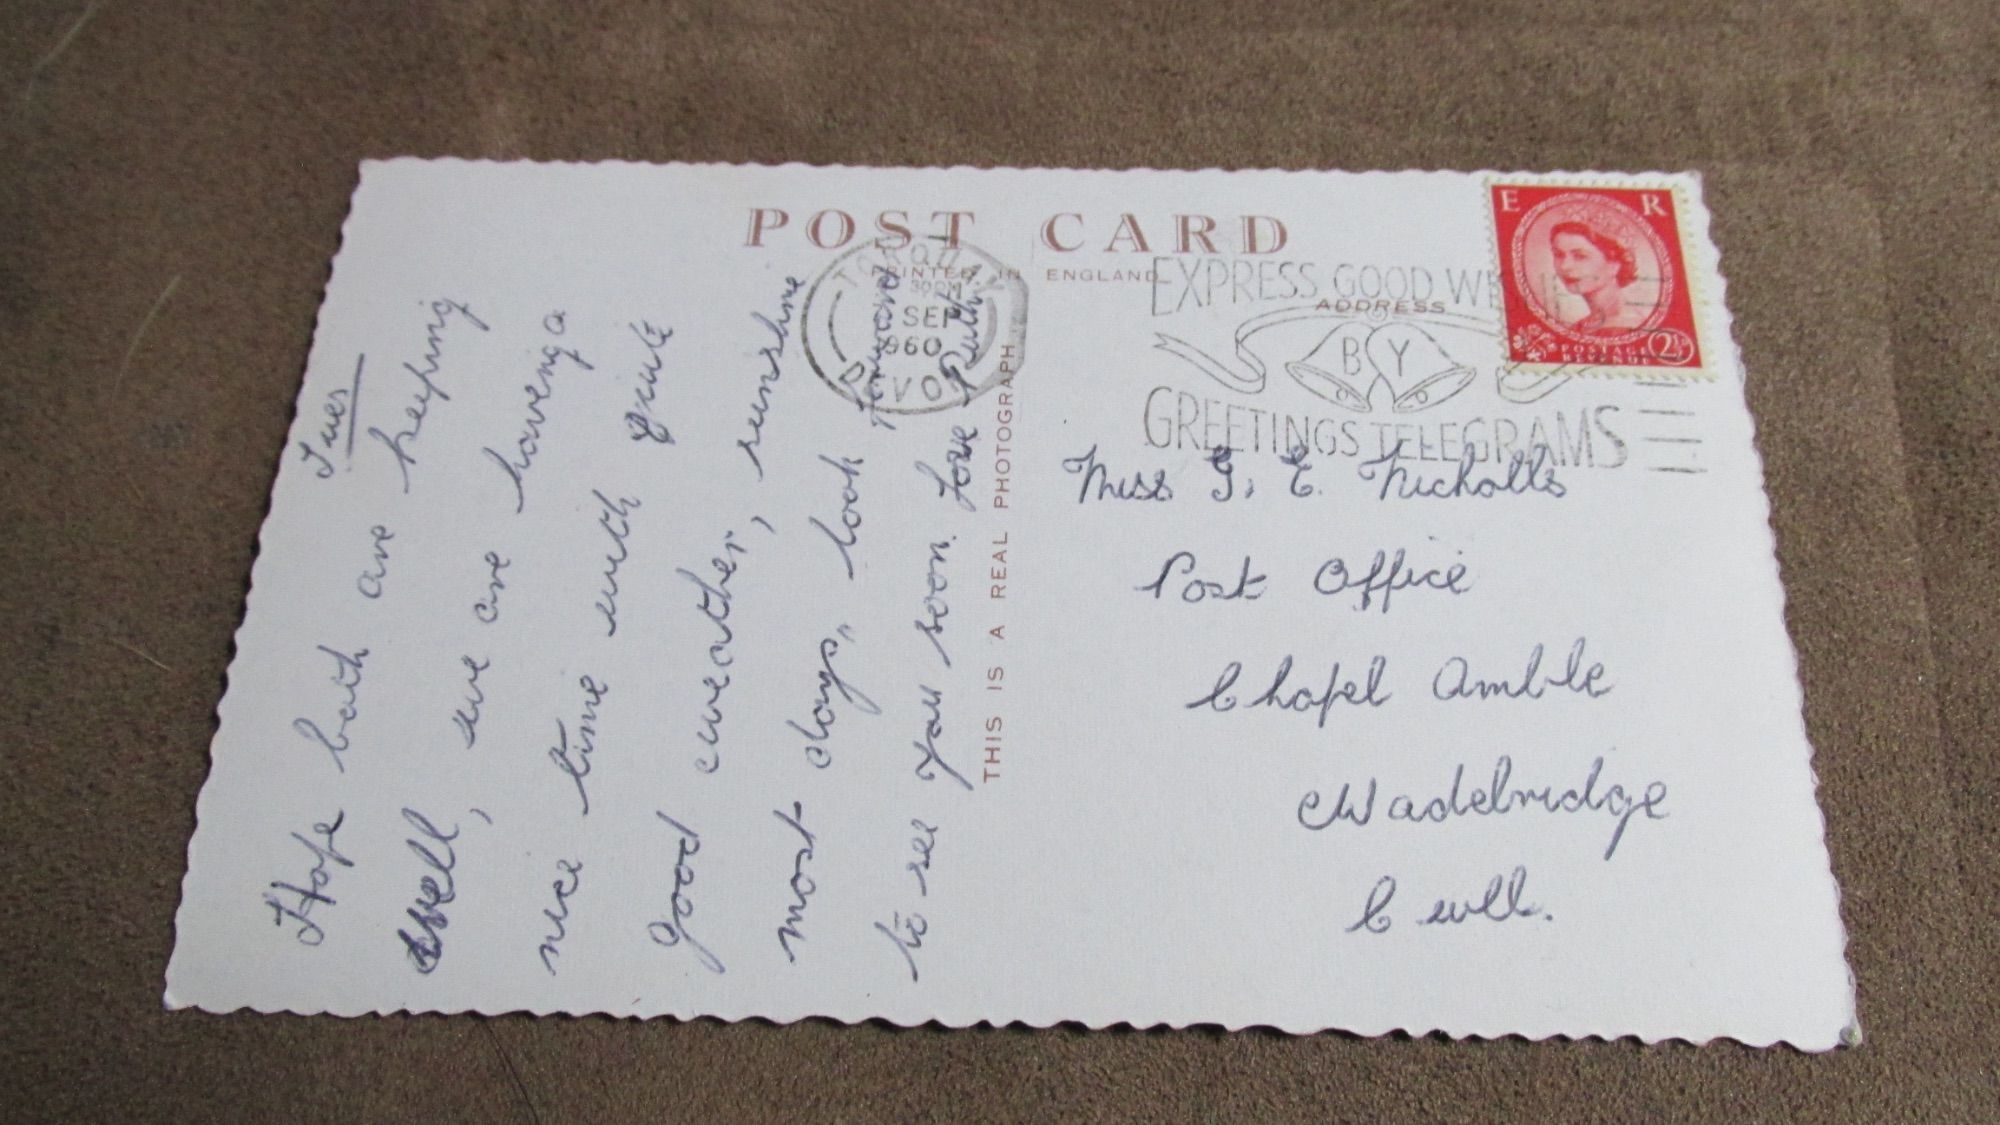 POST CARD
PRINTED IN ENGLAND
ADDRESS
TORQUAY
SEP
960
DEVON
EXPRESS GOOD WISHES
BY
GREETINGS TELEGRAMS
E R
POSTAGE
REVENUE
2½D
Tues
Hope both are keeping
well, we are having a
nice time with quite
good weather, sunshine
most days, look forward
to see you soon. Love Ruth
THIS IS A REAL PHOTOGRAPH
Miss E. Nicholls
Post Office
Chapel Amble
Wadebridge
C wll.